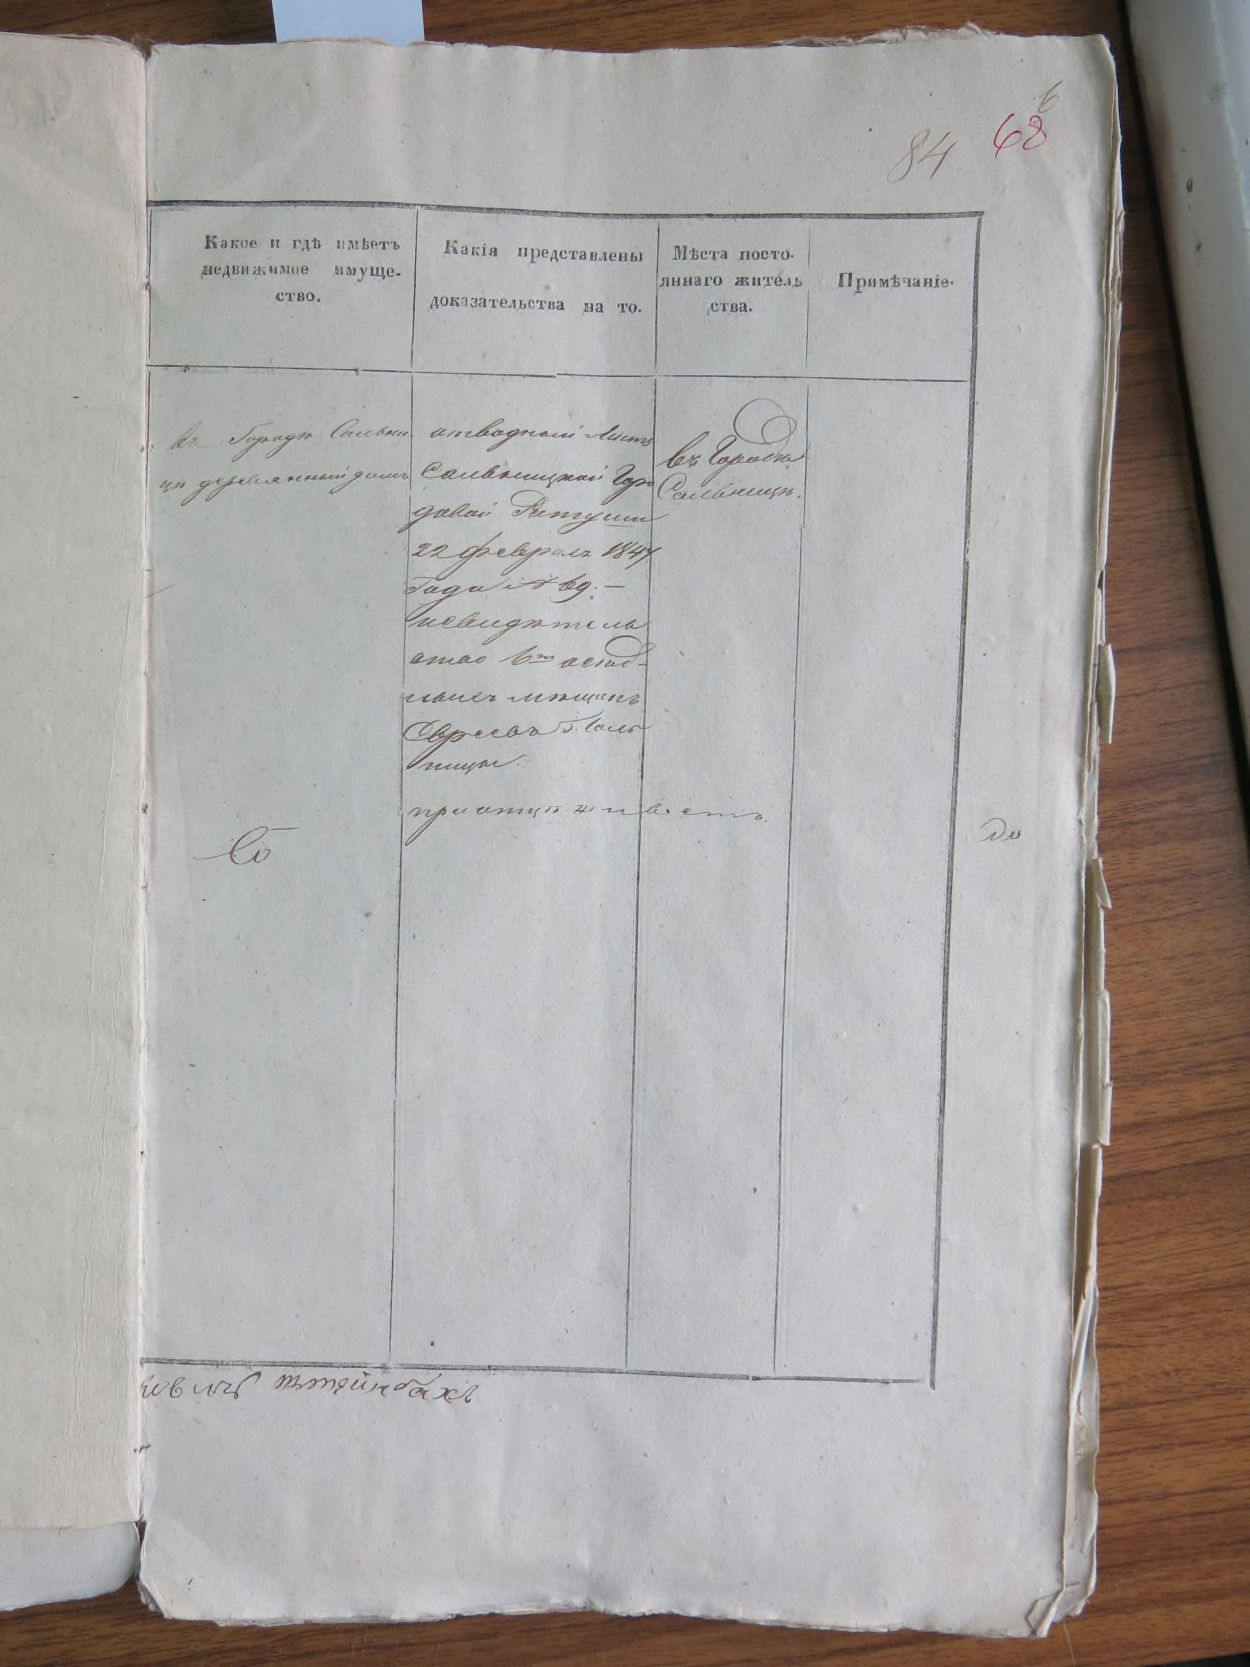 6
84 68
Какое и гдѣ имѣетъ
недвижимое имуще-
ство.
Какія представлены
доказательства на то.
Мѣста посто-
яннаго житель
ства.
Примѣчаніе.
въ Городѣ Сальни
цѣ деревянный домъ
отводный Листъ
Сальницкой Горо
довой Ратуши
22 февраля 1847
Года № 69. —
исвидѣтель
ство 6ти осѣд-
лыхъ мѣщанъ
Евреевъ Г. Саль
ницы.
при отцѣ живетъ.
въ Городѣ
Сальницѣ.
Со
до
Штейнбахъ